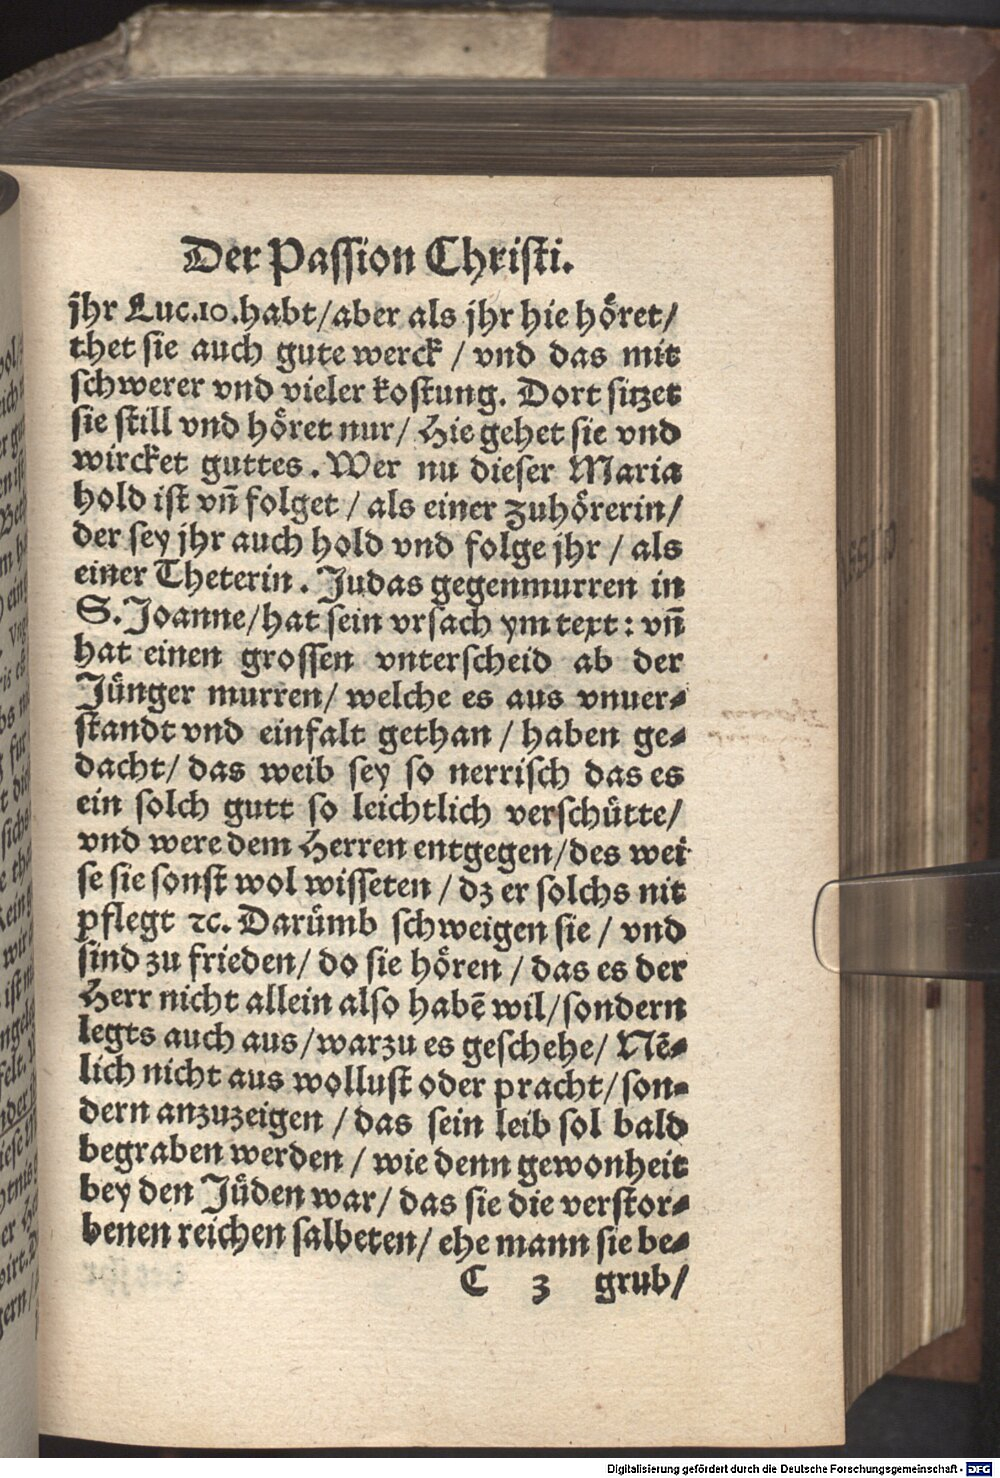 Der Passion Christi.
jhr Luc.10.habt/aber als jhr hie hoͤret/
thet sie auch gute werck / vnd das mit
schwerer vnd vieler kostung. Dort sitzet
sie still vnd hoͤret nur/ Hie gehet sie vnd
wircket guttes. Wer nu dieser Maria
hold ist vn̄ folget / als einer zuhoͤrerin/
der sey jhr auch hold vnd folge jhr / als
einer Theterin. Judas gegenmurren in
S. Joanne/hat sein vrsach ym text: vn̄
hat einen grossen vnterscheid ab der
Juͤnger murren/ welche es aus vnuer⸗
standt vnd einfalt gethan / haben ge⸗
dacht/ das weib sey so nerrisch das es
ein solch gutt so leichtlich verschuͤtte/
vnd were dem Herren entgegen/des wei
se sie sonst wol wisseten / dz er solchs nit
pflegt ꝛc. Daruͤmb schweigen sie / vnd
sind zu frieden/ do sie hoͤren / das es der
Herr nicht allein also habē wil/sondern
legts auch aus/warzu es geschehe/ Nē⸗
lich nicht aus wollust oder pracht/son⸗
dern anzuzeigen / das sein leib sol bald
begraben werden / wie denn gewonheit
bey den Juͤden war/ das sie die verstor⸗
benen reichen salbeten/ ehe mann sie be⸗
C 3 grub/
Digitalisierung gefördert durch die Deutsche Forschungsgemeinschaft - DFG